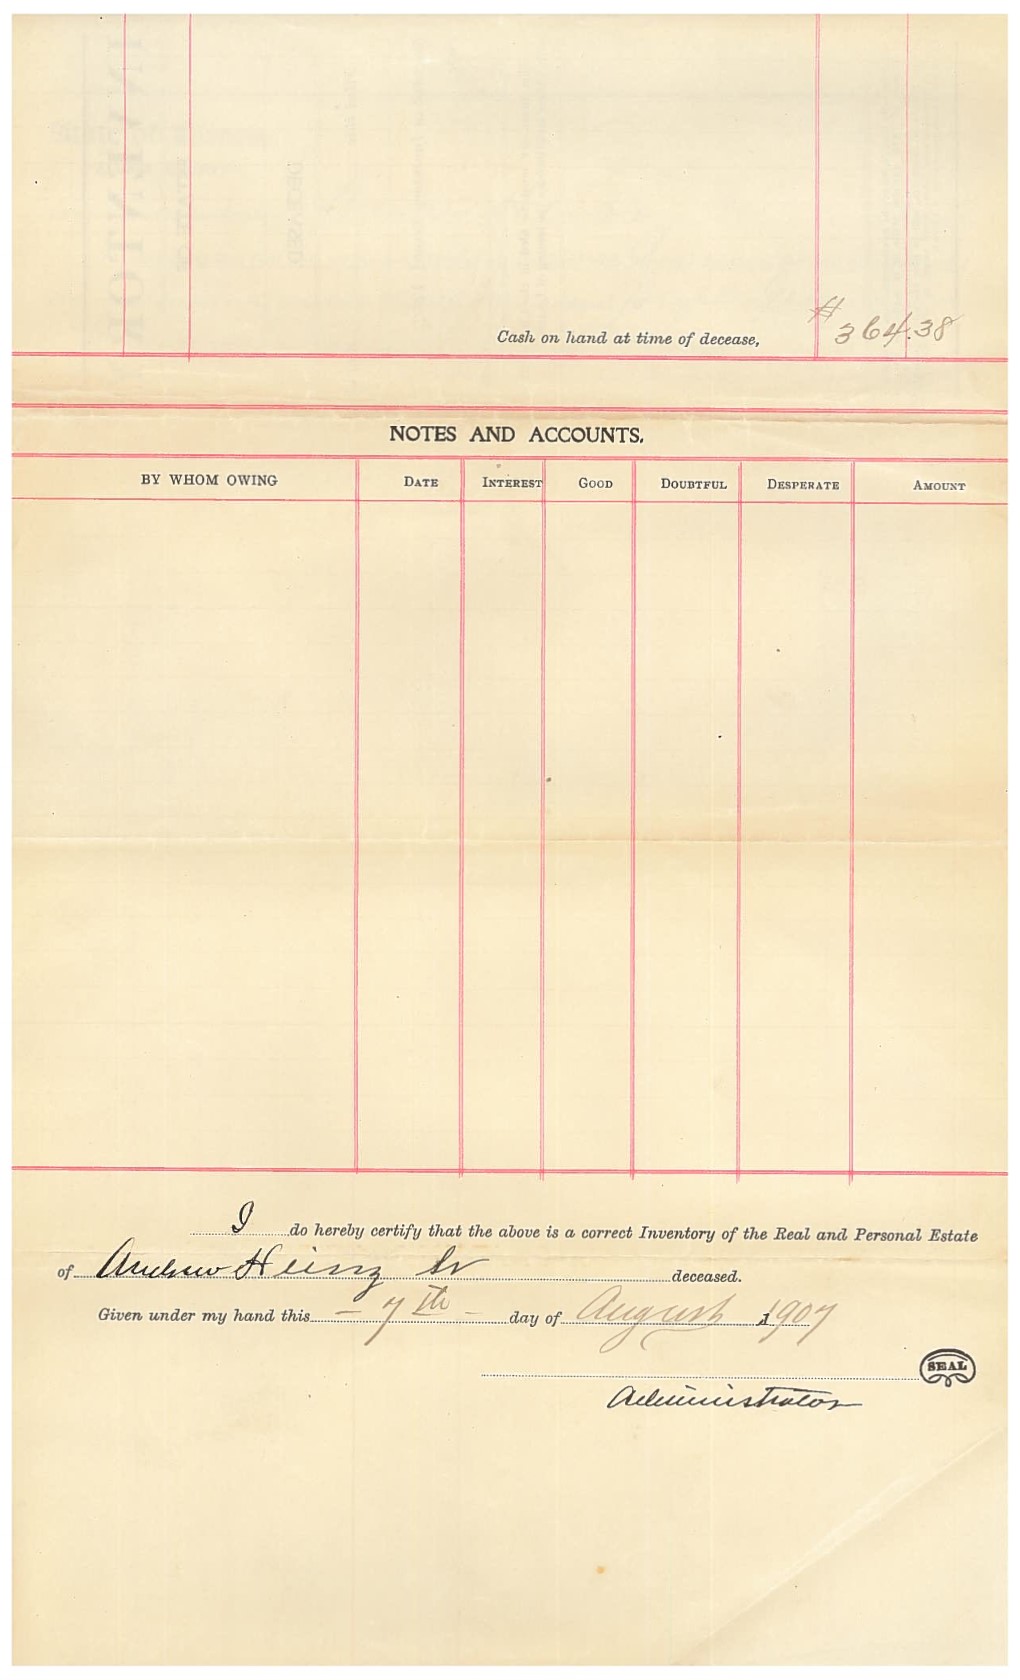 Cash on hand at time of decease, $364.38
NOTES AND ACCOUNTS.
BY WHOM OWING DATE INTEREST GOOD DOUBTFUL DESPERATE AMOUNT
I do hereby certify that the above is a correct Inventory of the Real and Personal Estate
of Andrew Heinz Sr deceased.
Given under my hand this - 7th - day of August 1907
SEAL
Administrator